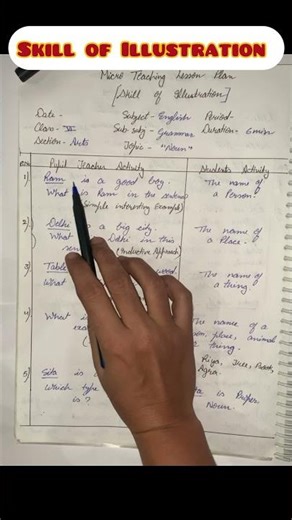 SKILL OF ILLUSTRATION
Micro Teaching Lesson Plan
[Skill of Illustration]
Date - Subject - English Period -
Class - VI Sub-subj - Grammar Duration - 6 min
Section - Arts Topic - "Noun"
Pupil Teacher Activity Students Activity
1) Ram is a good boy. The name of
What is Ram in the sentence a Person.
(Simple interesting Example)
2) Delhi is a big city The name of
What Delhi in this a Place.
sen (Inductive Approach)
3) Table wood. The name of
What a thing.
4) What is The name of a
place, animal
a thing.
Riya, Tree,
Agra.
5) Sita is is Proper
Which type Noun.
is ?